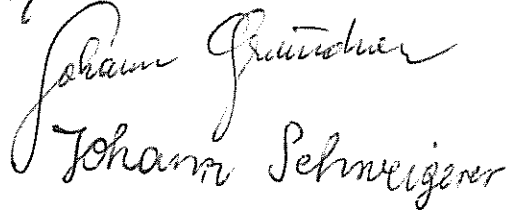 Johann Gmundner
Johann Schweigerer